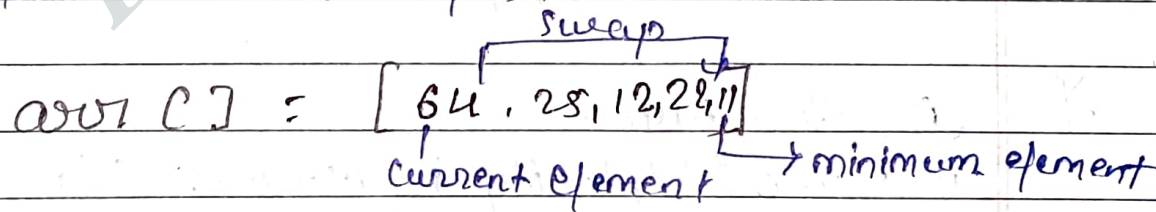 swap
arr [] = [64, 25, 12, 22, 11]
current element → minimum element